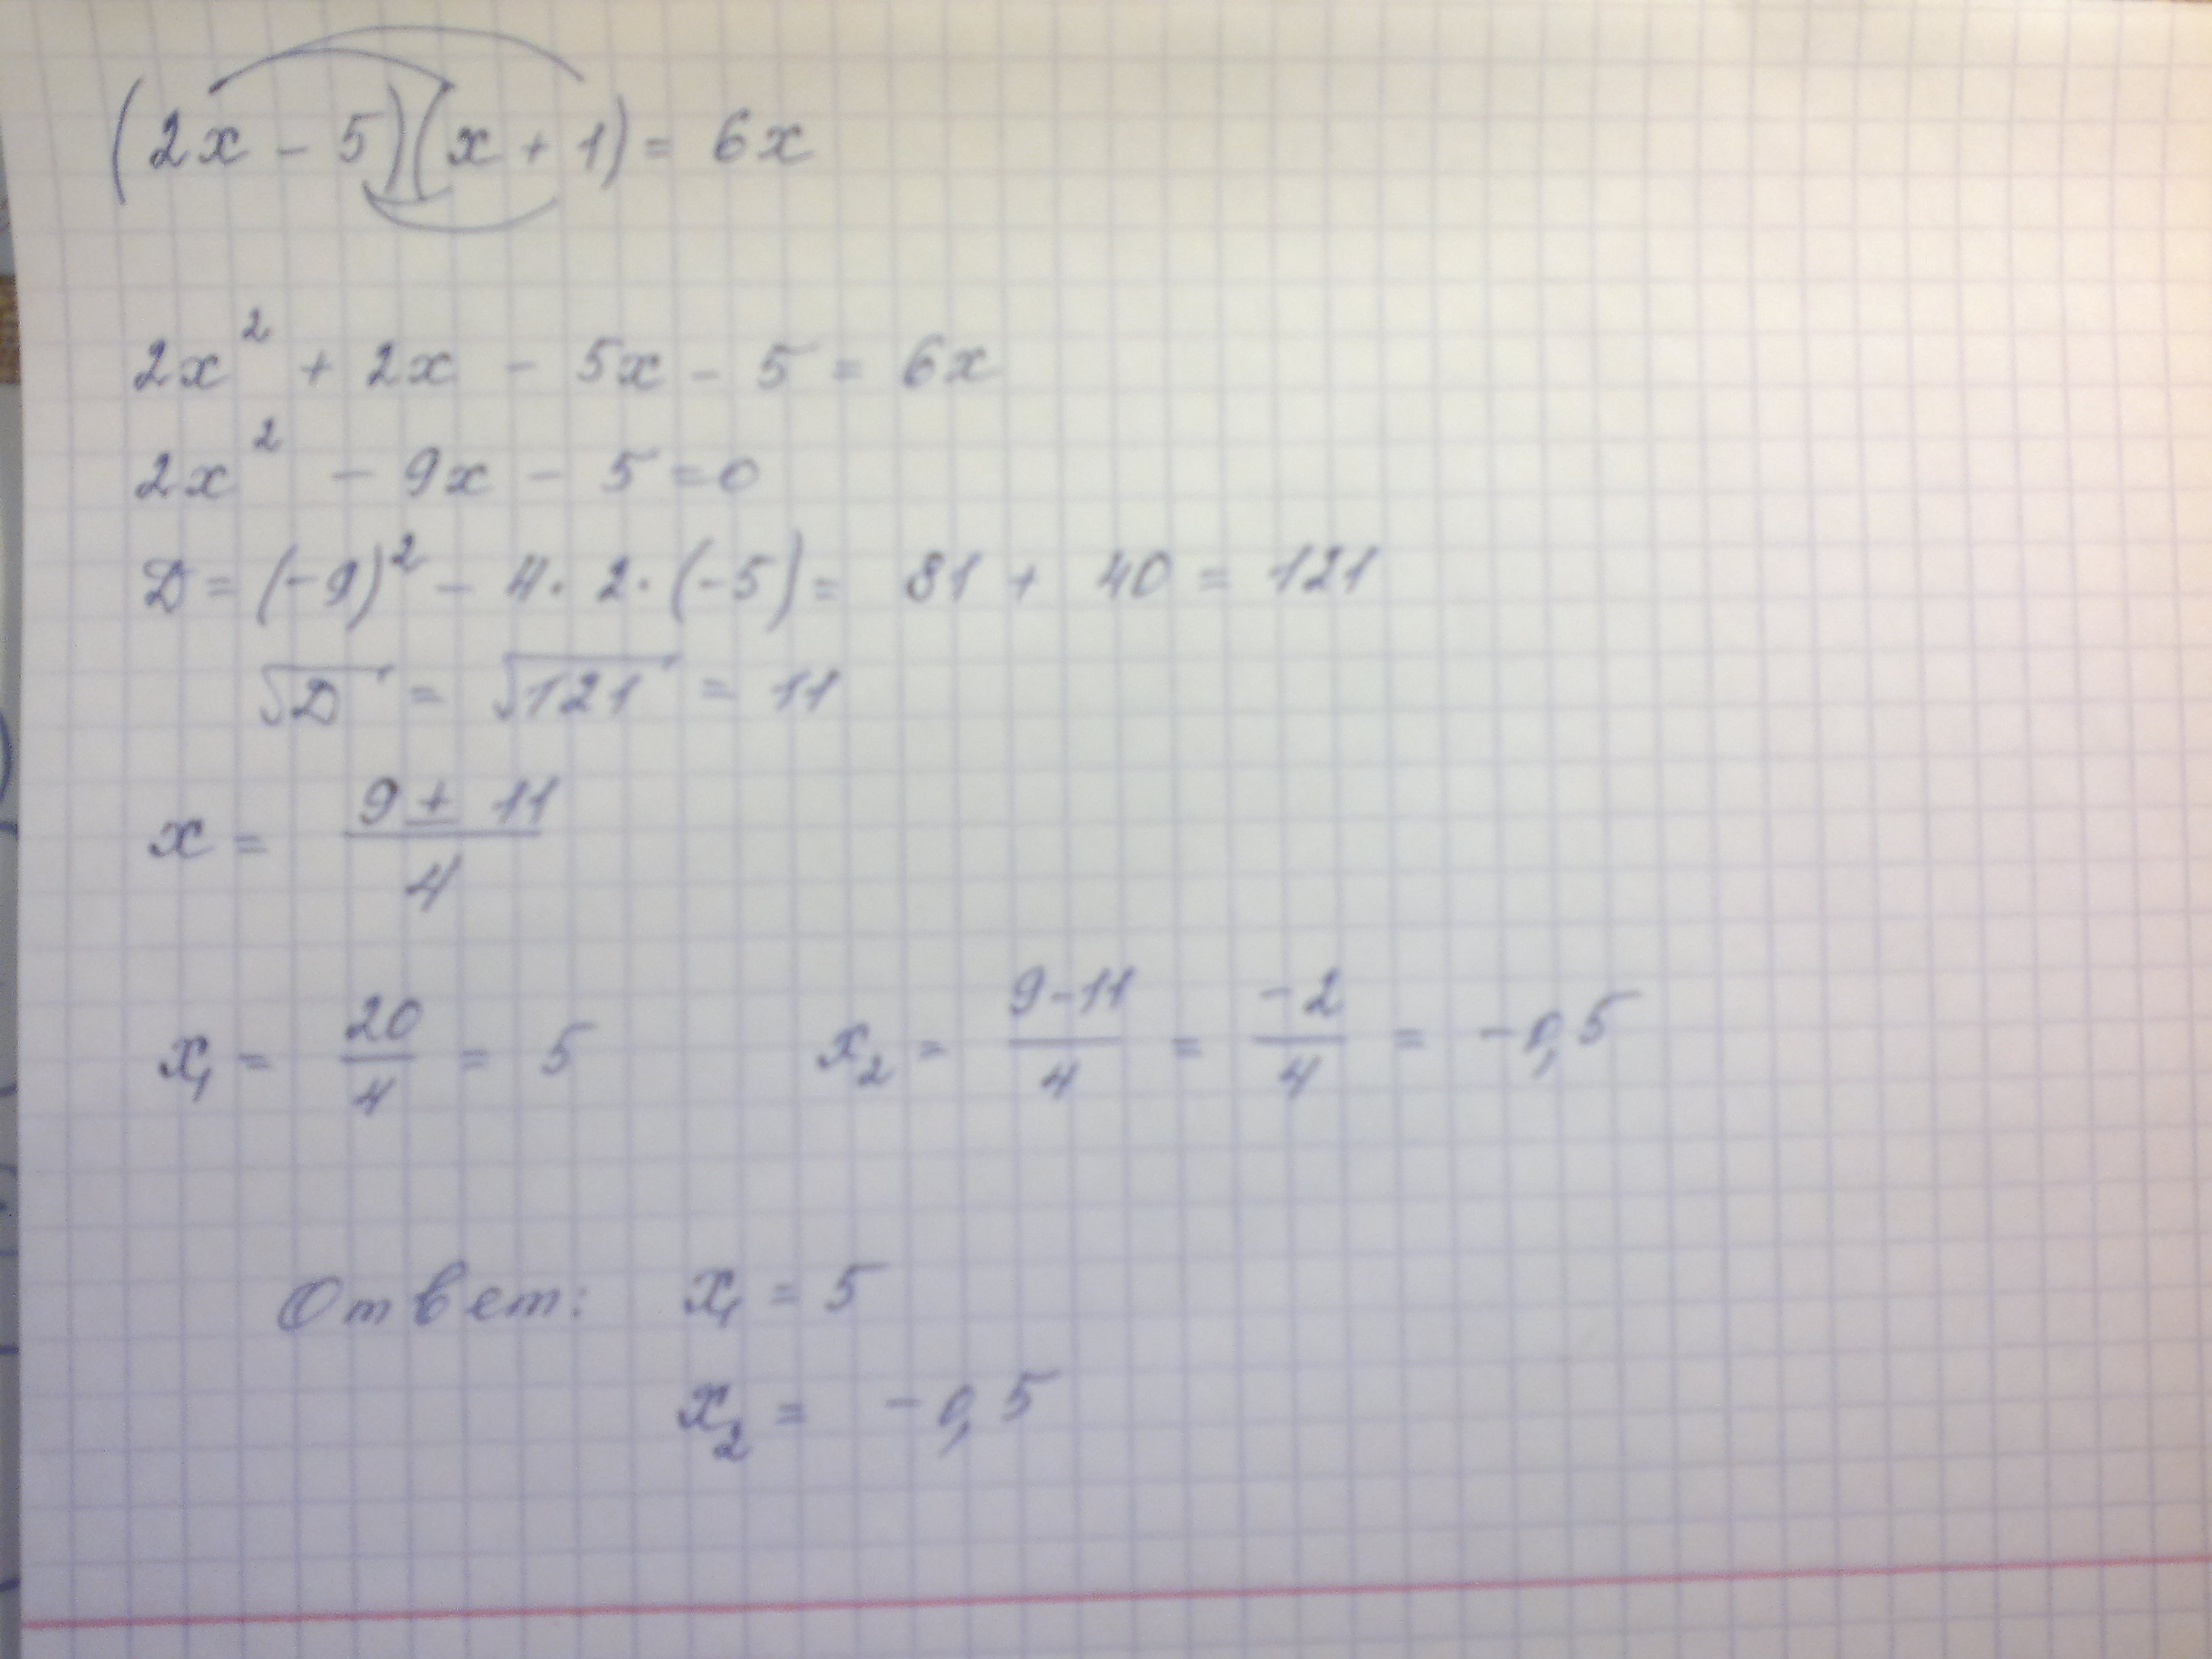 (2x - 5)(x + 1) = 6x
2x² + 2x - 5x - 5 = 6x
2x² - 9x - 5 = 0
D = (-9)² - 4 · 2 · (-5) = 81 + 40 = 121
√D = √121 = 11
x = (9 ± 11)/4
x₁ = 20/4 = 5 x₂ = (9-11)/4 = -2/4 = -0,5
Ответ: x₁ = 5
x₂ = -0,5